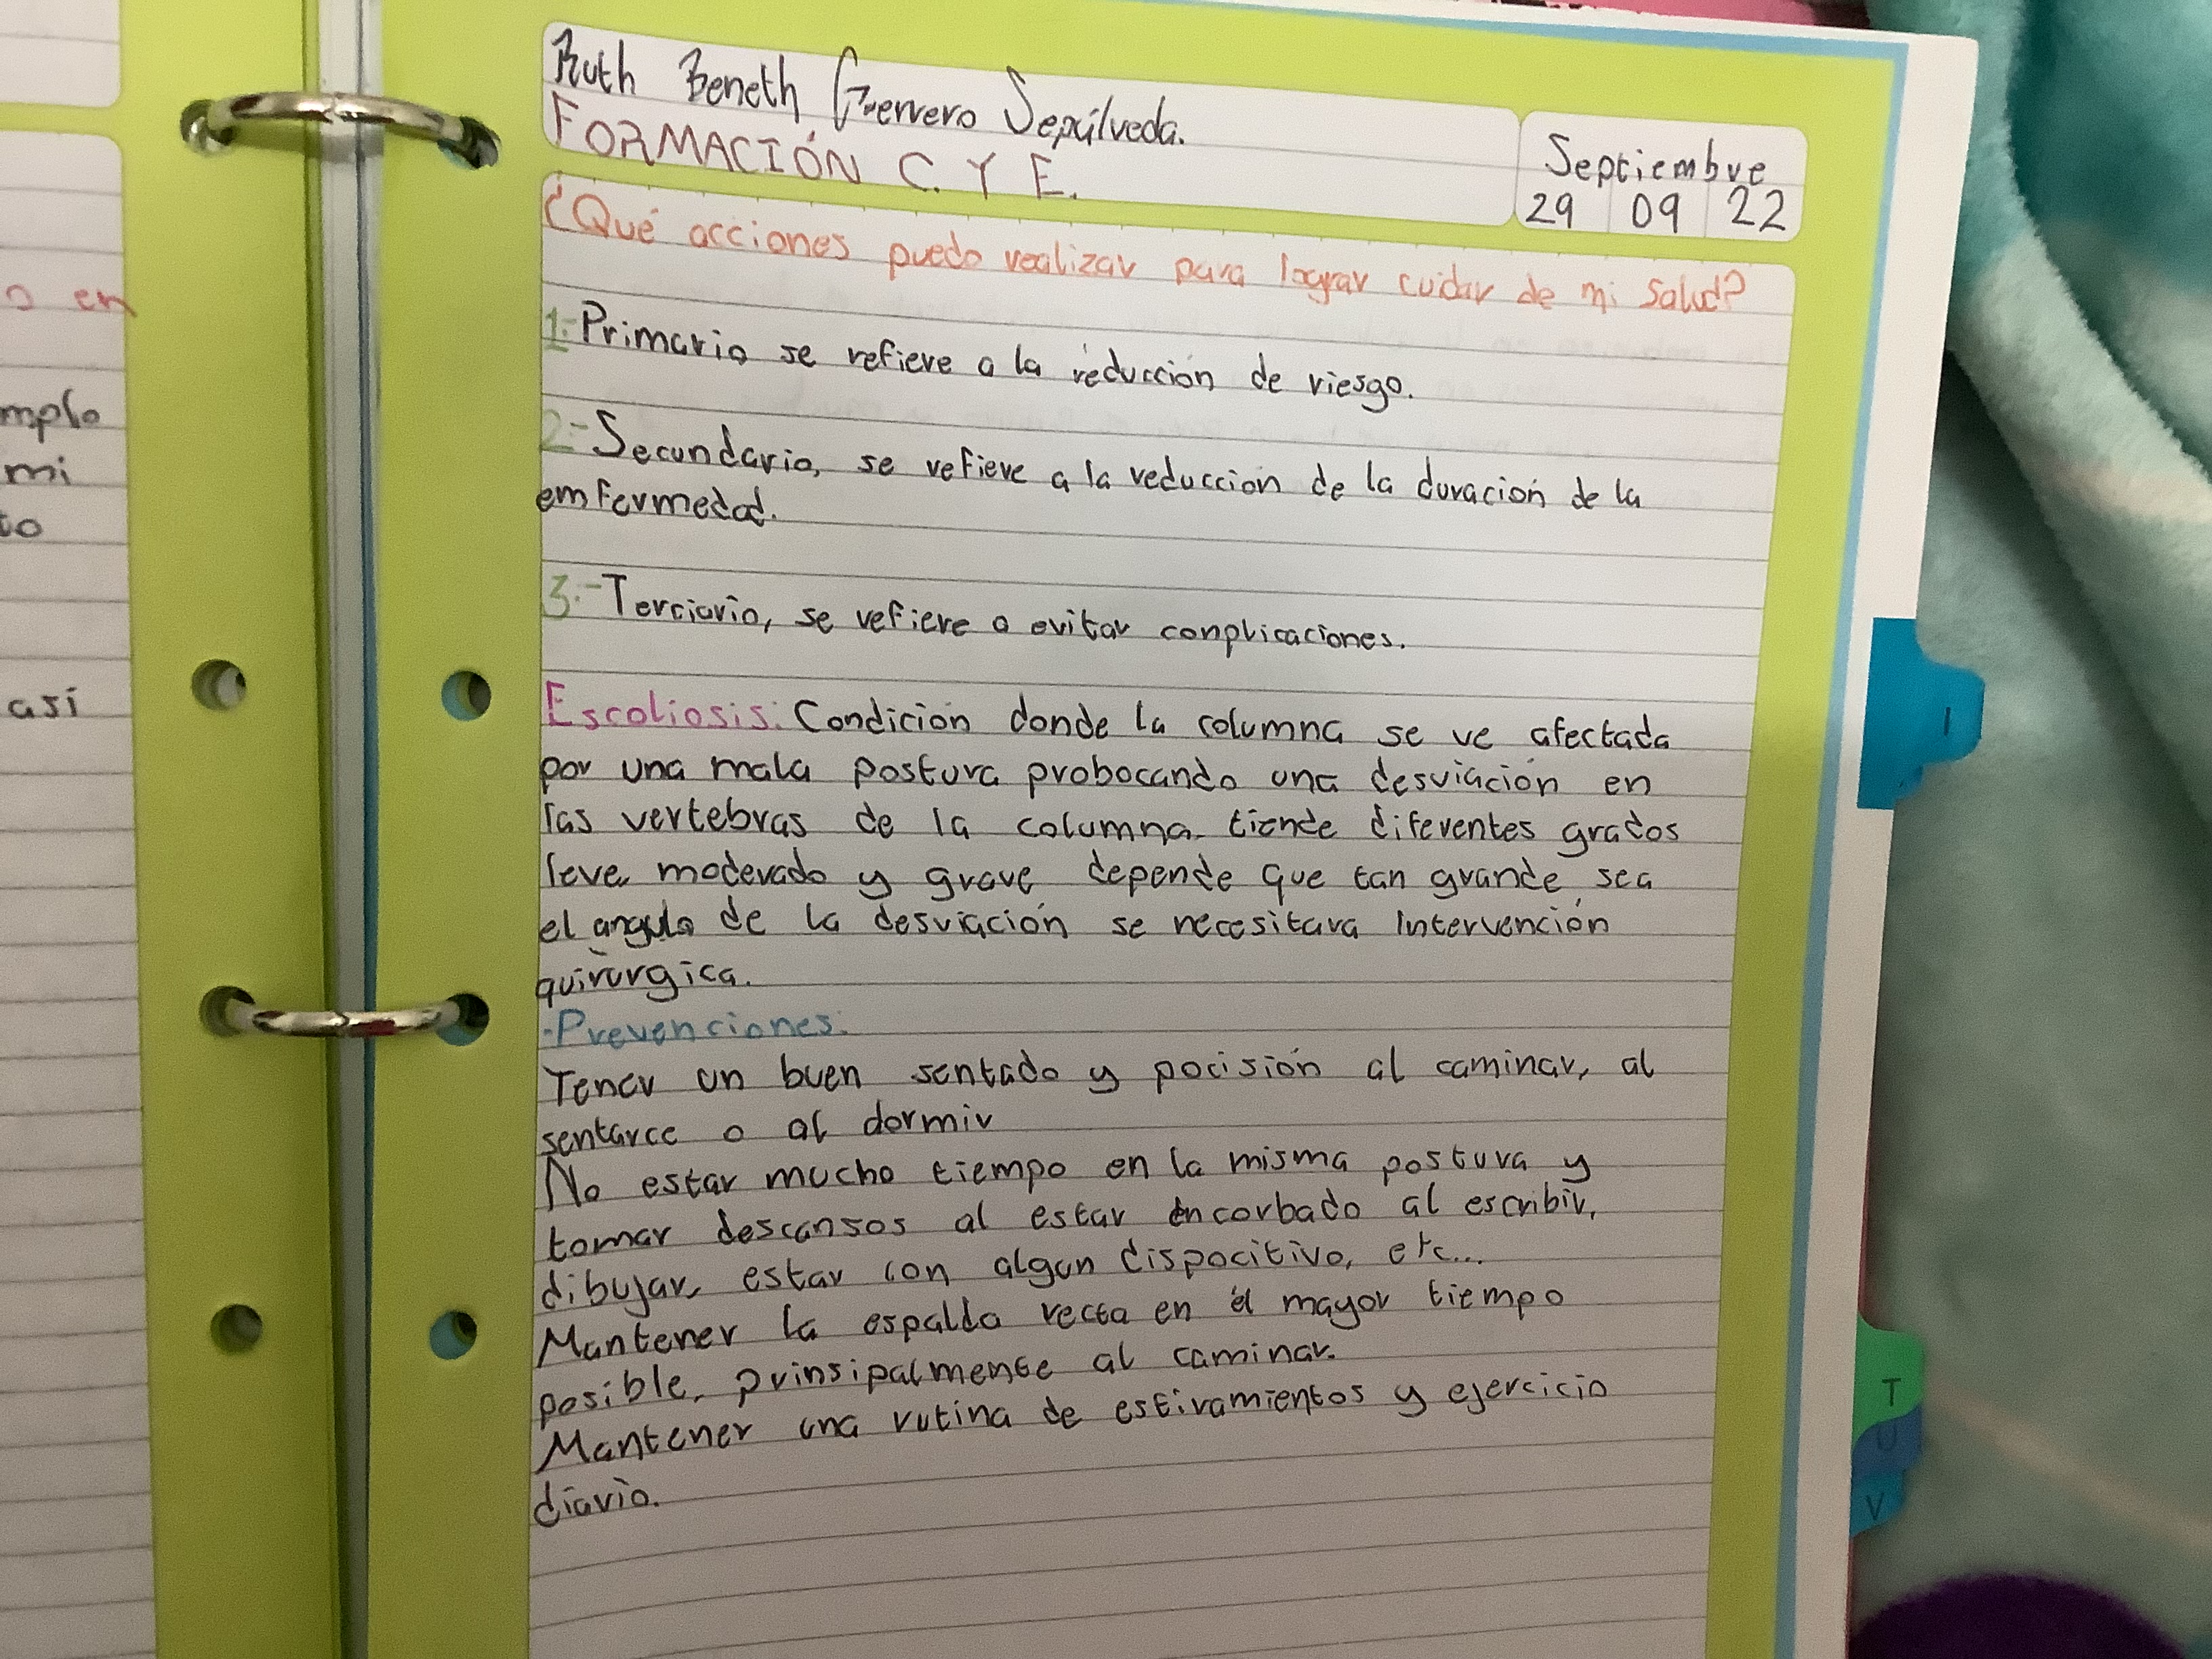 Ruth Beneth Guerrero Sepúlveda.
FORMACIÓN C. Y E.
Septiembre
29 09 22
¿Qué acciones puedo realizar para lograr cuidar de mi salud?
1.- Primario se refiere a la reducción de riesgo.
2.- Secundario, se refiere a la reducción de la duración de la
emfermedad.
3.- Terciario, se refiere a evitar conplicaciones.
Escoliosis: Condición donde la columna se ve afectada
por una mala postura probocando una desviación en
las vertebras de la columna tiende diferentes grados
leve, moderado y grave depende que tan grande sea
el angulo de la desviación se necesitara Intervención
quirurgica.
-Prevenciones:
Tener un buen sentado y pocisión al caminar, al
sentarce o al dormir
No estar mucho tiempo en la misma postura y
tomar descansos al estar encorbado al escribir,
dibujar, estar con algun dispocitivo, etc...
Mantener la espalda recta en el mayor tiempo
posible, prinsipalmente al caminar.
Mantener una rutina de estiramientos y ejercicio
diario.
o en
mplo
mi
to
así
I
T
U
V